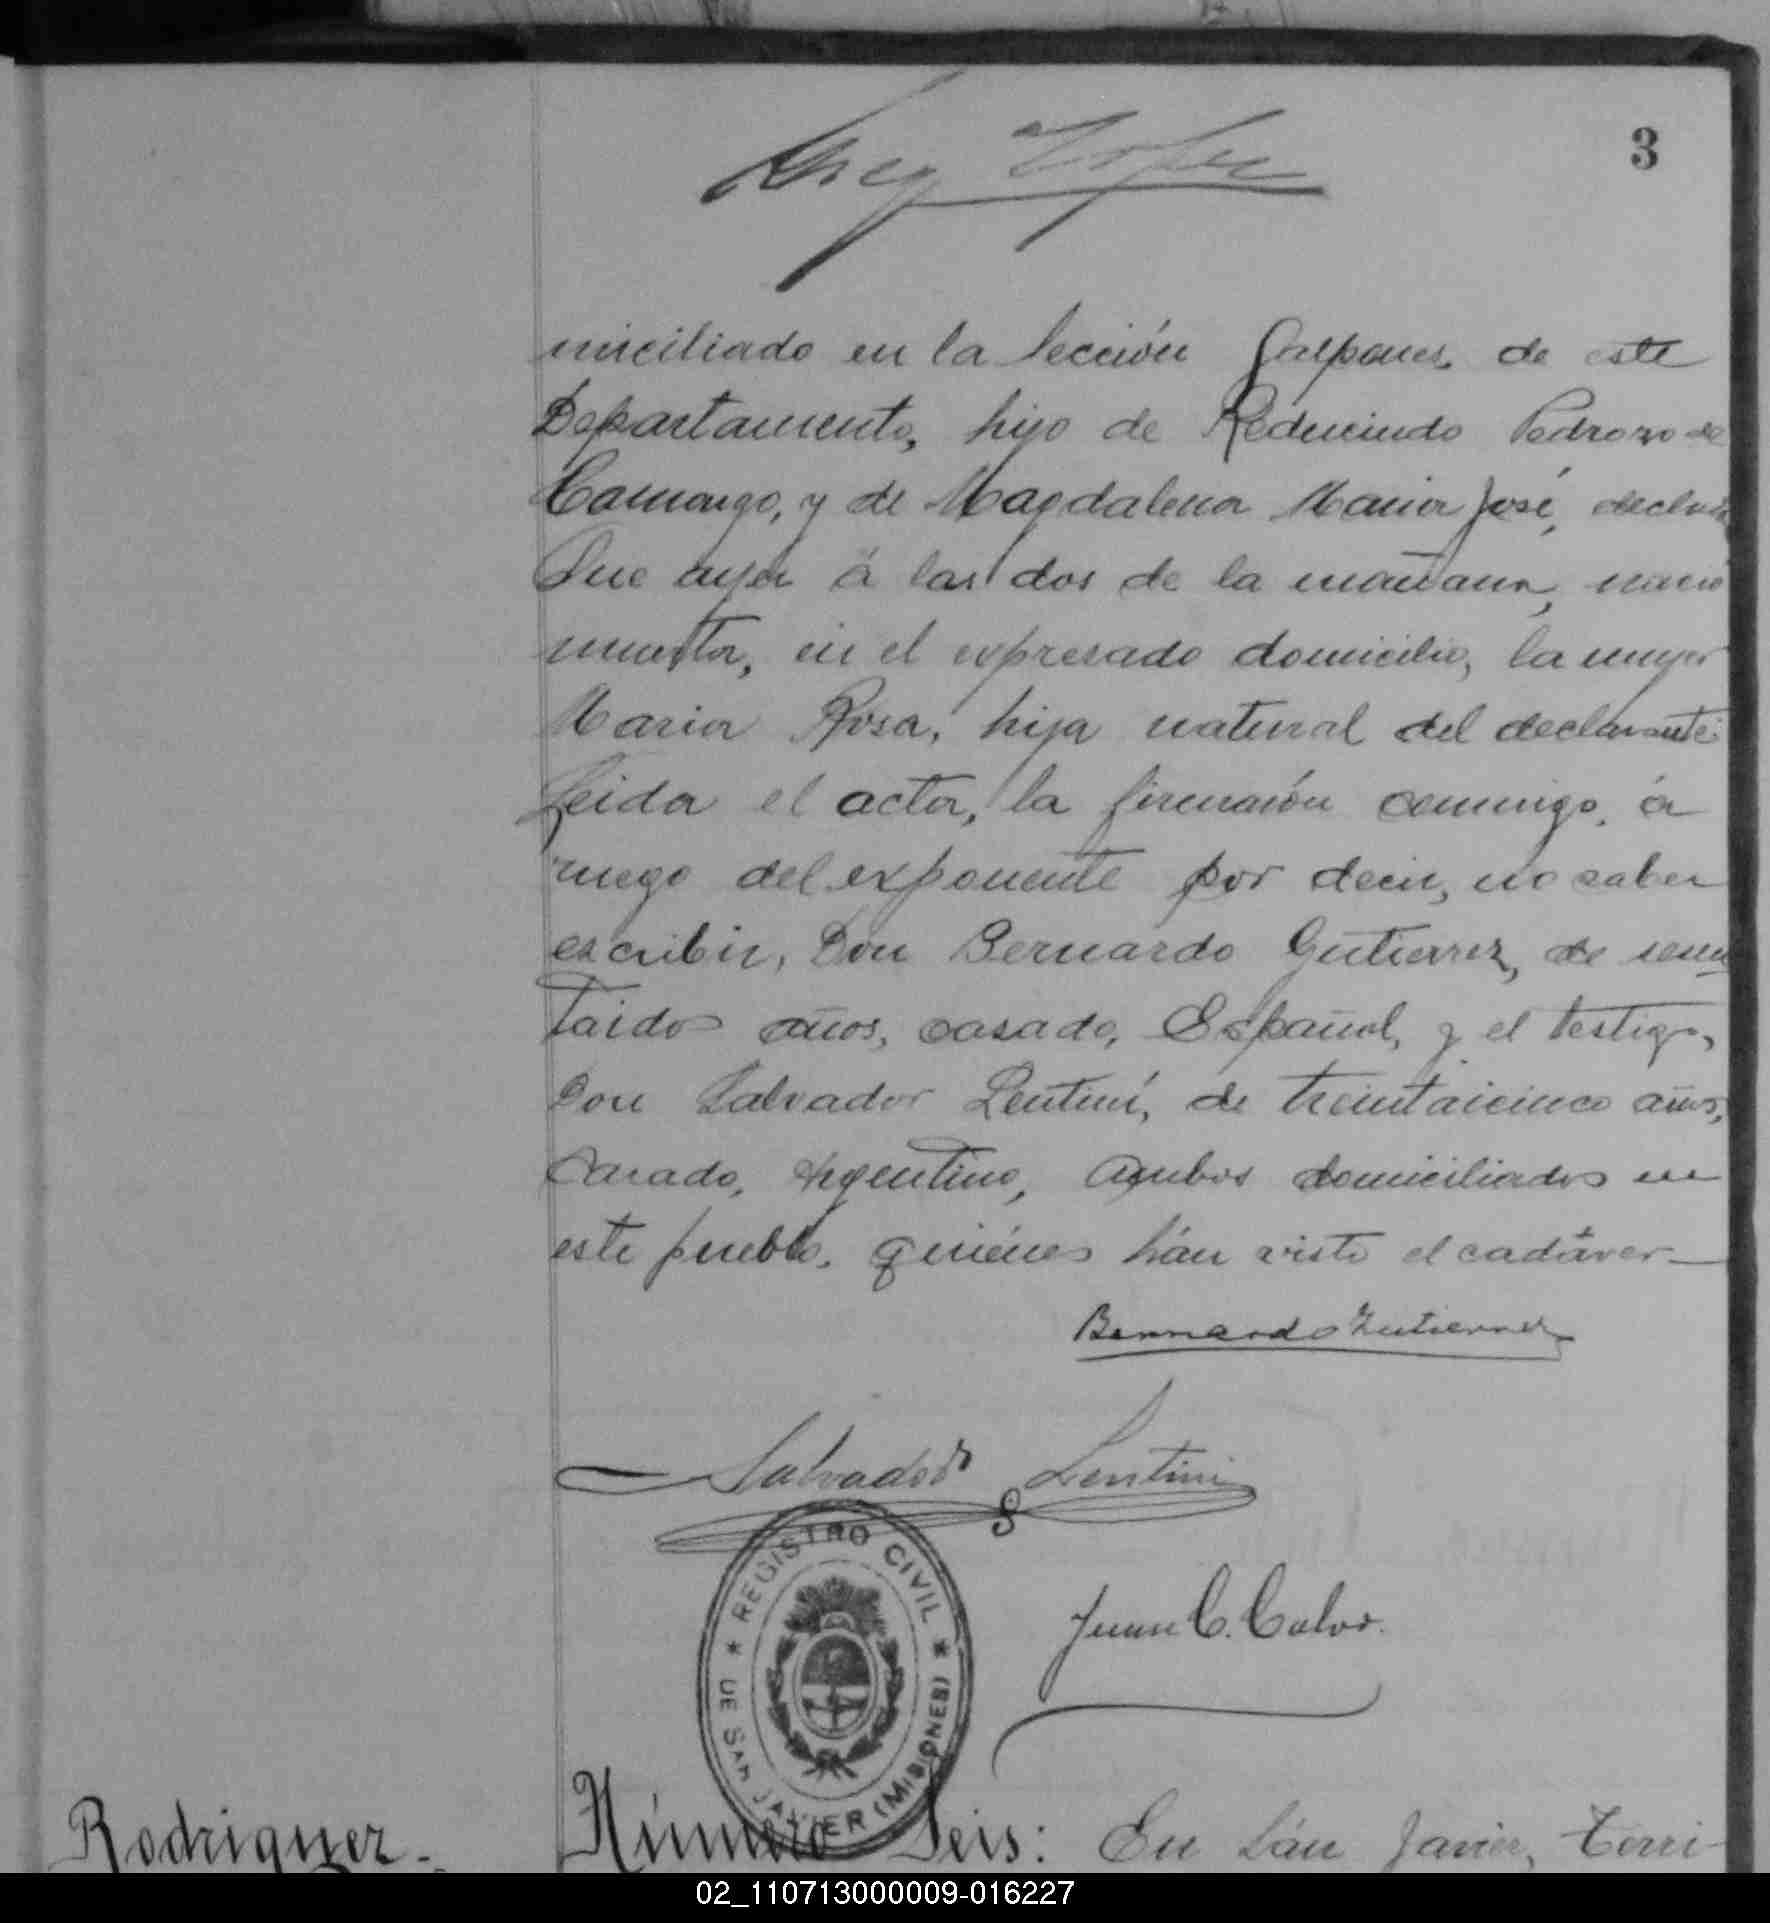 3
miciliado en la Sección Galpones, de este
Departamento, hijo de Reducindo Pedrozo de
Camargo, y de Magdalena Maria José, declaró:
Que ayer á las dos de la mañana, nació
muerta, en el expresado domicilio, la mujer
Maria Rosa, hija natural del declarante.
Leida el acta, la firmarón conmigo, á
ruego del exponente por decir, no saber
escribir, Don Bernardo Gutierrez, de sesen
taidos años, casado, Español, y el testigo,
Don Salvador Lentiní, de treintaicinco años,
Casado, Argentino, Ambos domiciliados en
este pueblo, quiénes hán visto el cadáver—
Bernardo Gutierrez
Salvador Lentini
REGISTRO CIVIL
DE SAN JAVIER (MISIONES)
Juan C. Calvo.
Rodriguez-
Número Seis: En Sán Javier, Terri-
02_110713000009-016227